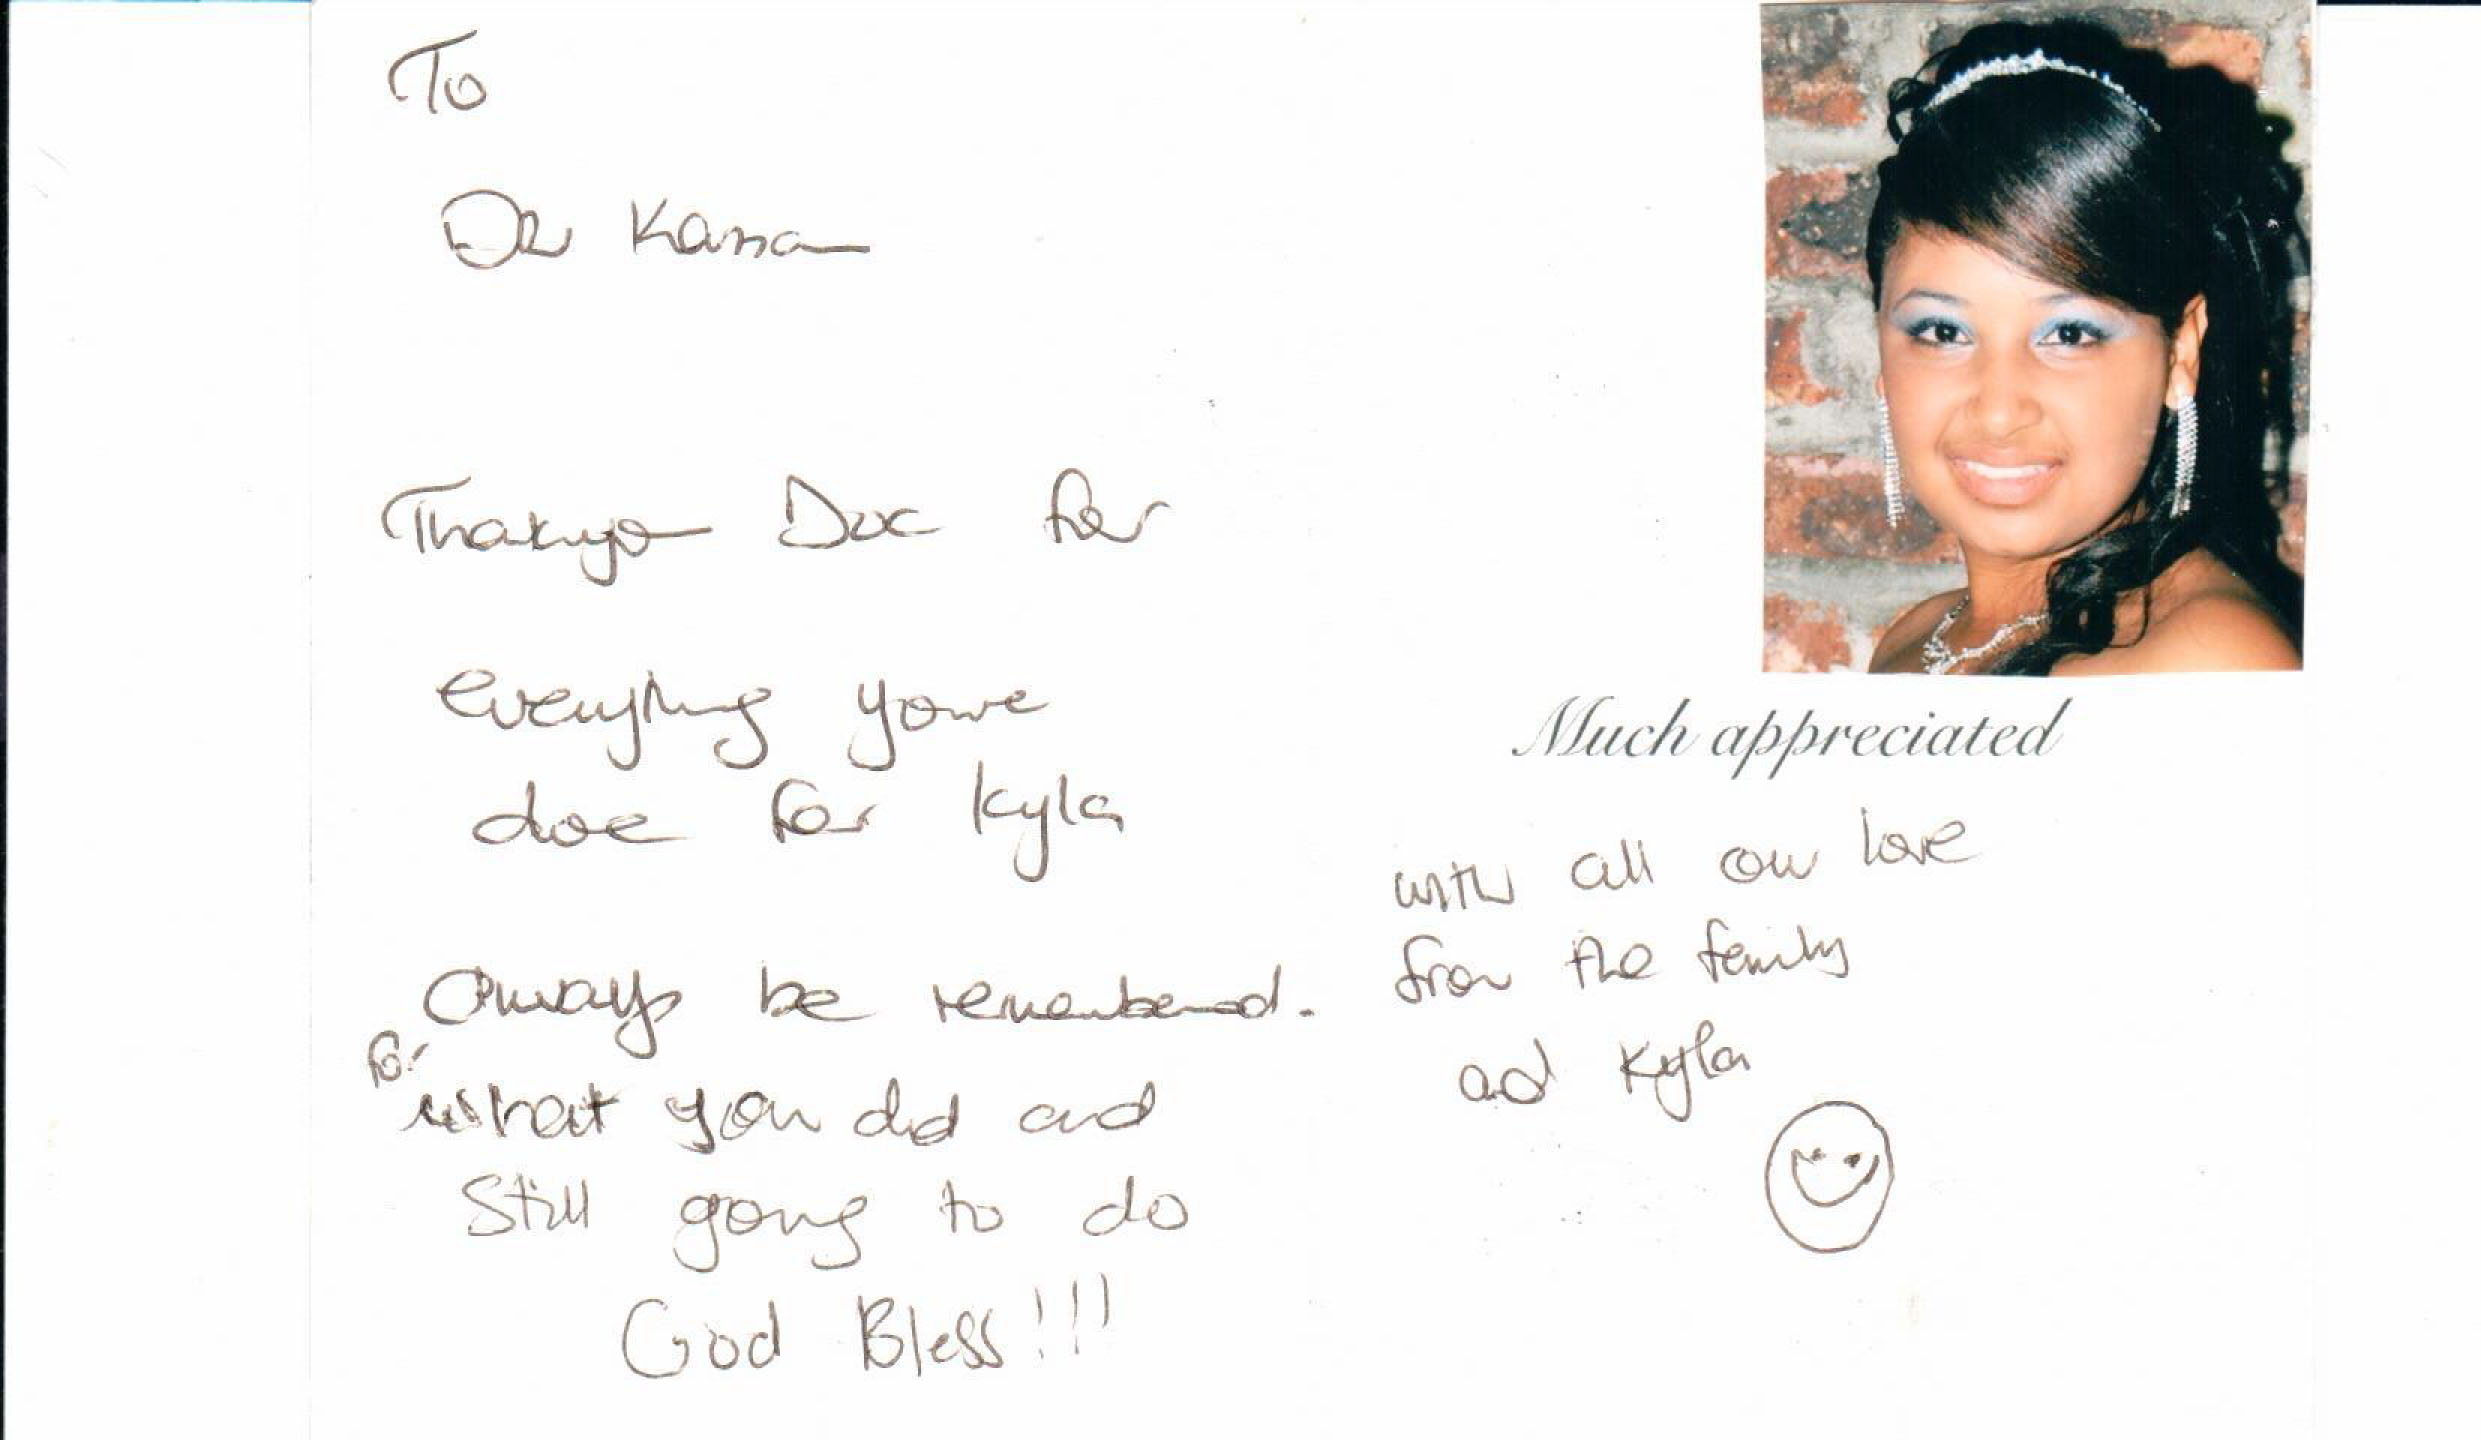 To
Dr
Thankyou Doc for
everything youve
done for Kyla
Always be remembered.
for
what you did and
Still going to do
God Bless!!!
Much appreciated
with all our love
from the family
and Kyla